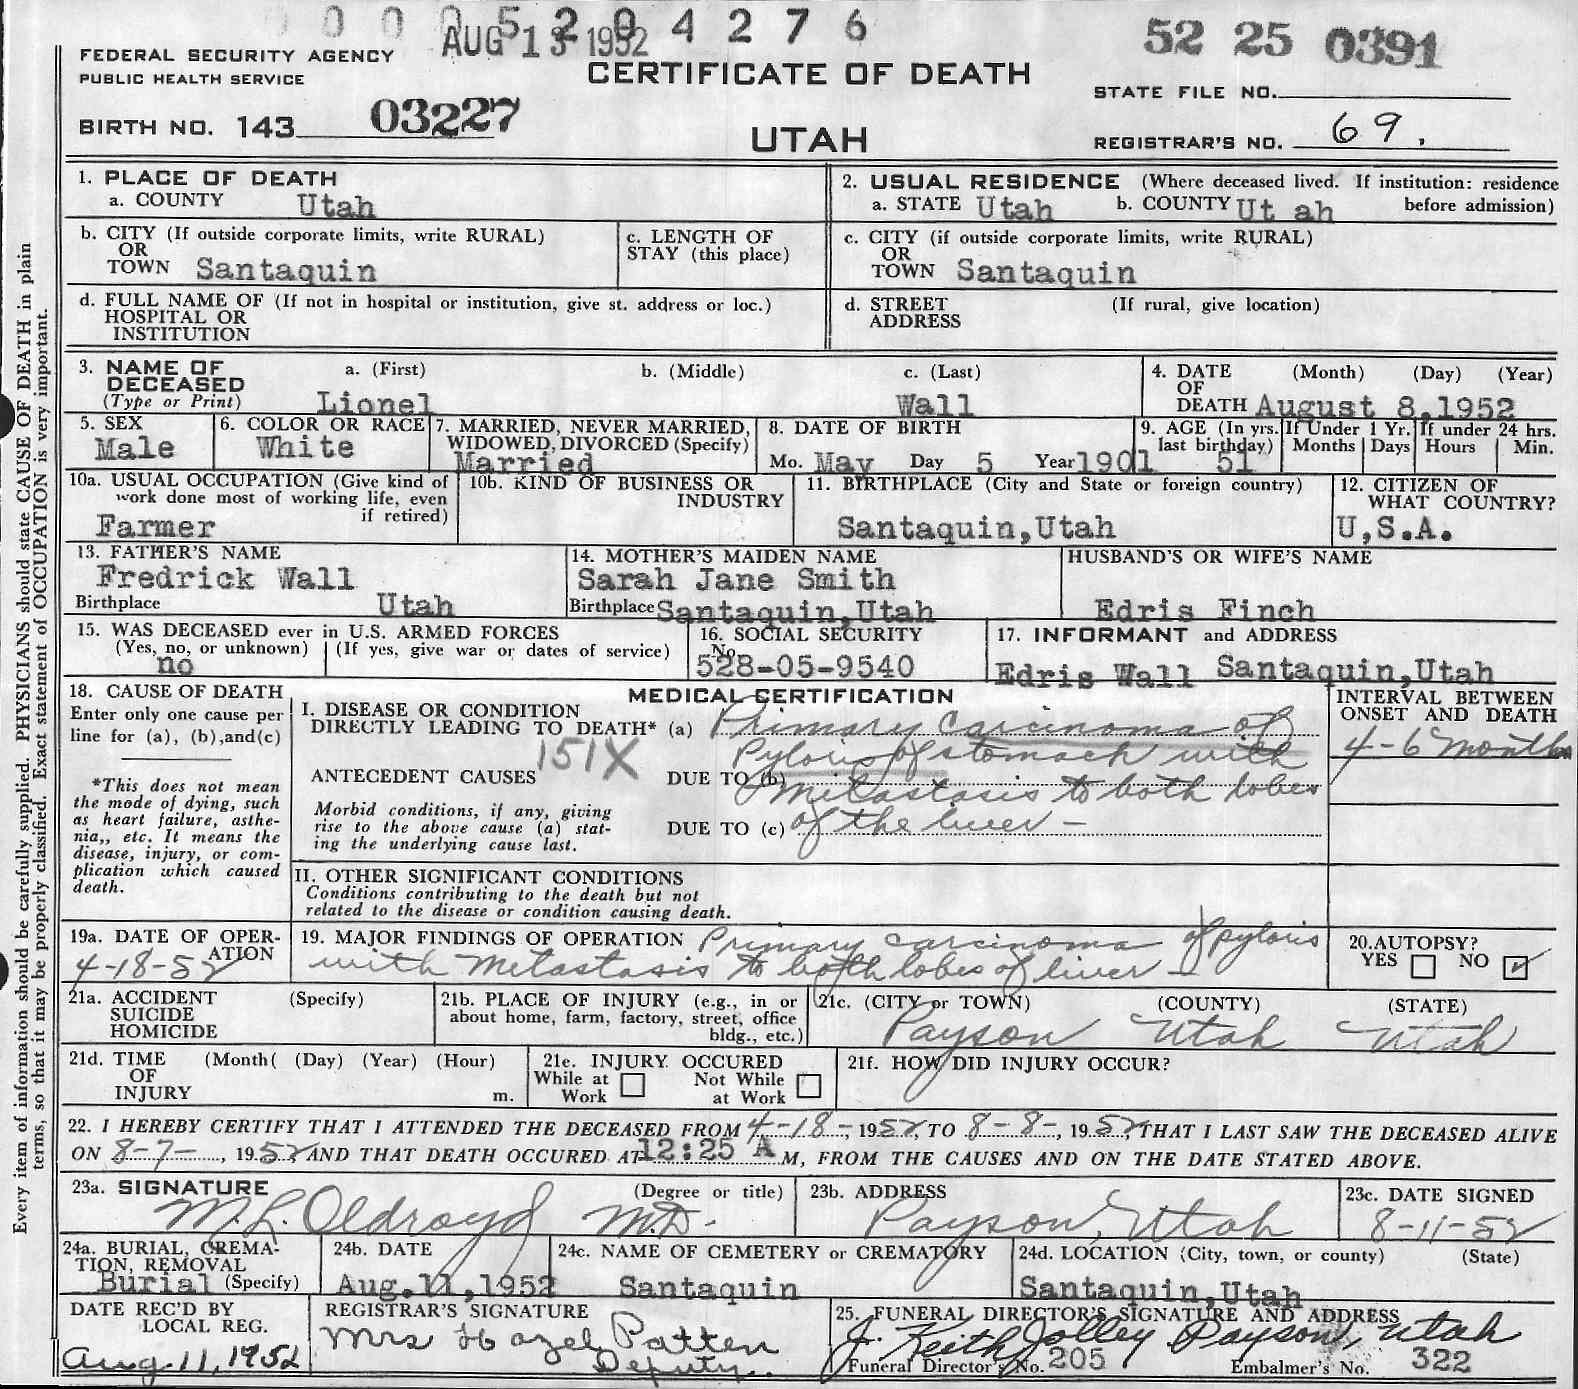 0 0 0 5 2 0 4 2 7 6
AUG 13 1952
52 25 0391
FEDERAL SECURITY AGENCY
PUBLIC HEALTH SERVICE
CERTIFICATE OF DEATH
STATE FILE NO.
BIRTH NO. 143 03227
UTAH
REGISTRAR'S NO. 69.
Every item of information should be carefully supplied. PHYSICIANS should state CAUSE OF DEATH in plain
terms, so that it may be properly classified. Exact statement of OCCUPATION is very important.
1. PLACE OF DEATH
a. COUNTY Utah
2. USUAL RESIDENCE (Where deceased lived. If institution: residence
before admission)
a. STATE Utah b. COUNTY Ut ah
b. CITY (If outside corporate limits, write RURAL)
OR
TOWN Santaquin
c. LENGTH OF
STAY (this place)
c. CITY (if outside corporate limits, write RURAL)
OR
TOWN Santaquin
d. FULL NAME OF (If not in hospital or institution, give st. address or loc.)
HOSPITAL OR
INSTITUTION
d. STREET (If rural, give location)
ADDRESS
3. NAME OF
DECEASED
(Type or Print)
a. (First) b. (Middle) c. (Last)
Lionel Wall
4. DATE (Month) (Day) (Year)
OF
DEATH August 8,1952
5. SEX
Male
6. COLOR OR RACE
White
7. MARRIED, NEVER MARRIED,
WIDOWED, DIVORCED (Specify)
Married
8. DATE OF BIRTH
Mo. May Day 5 Year 1901
9. AGE (In yrs.
last birthday)
51
If Under 1 Yr.
Months Days
If under 24 hrs.
Hours Min.
10a. USUAL OCCUPATION (Give kind of
work done most of working life, even
if retired)
Farmer
10b. KIND OF BUSINESS OR
INDUSTRY
11. BIRTHPLACE (City and State or foreign country)
Santaquin,Utah
12. CITIZEN OF
WHAT COUNTRY?
U,S.A.
13. FATHER'S NAME
Fredrick Wall
Birthplace Utah
14. MOTHER'S MAIDEN NAME
Sarah Jane Smith
Birthplace Santaquin,Utah
HUSBAND'S OR WIFE'S NAME
Edris Finch
15. WAS DECEASED ever in U.S. ARMED FORCES
(Yes, no, or unknown) (If yes, give war or dates of service)
no
16. SOCIAL SECURITY
No.
528-05-9540
17. INFORMANT and ADDRESS
Edris Wall Santaquin,Utah
18. CAUSE OF DEATH
Enter only one cause per
line for (a), (b),and(c)
*This does not mean
the mode of dying, such
as heart failure, asthe-
nia,, etc. It means the
disease, injury, or com-
plication which caused
death.
MEDICAL CERTIFICATION
I. DISEASE OR CONDITION
DIRECTLY LEADING TO DEATH* (a) Primary carcinoma of
151X
Pyloris of stomach with
ANTECEDENT CAUSES DUE TO (b)
metastasis to both lobes
Morbid conditions, if any, giving
rise to the above cause (a) stat-
ing the underlying cause last.
DUE TO (c) of the liver -
INTERVAL BETWEEN
ONSET AND DEATH
4-6 months
II. OTHER SIGNIFICANT CONDITIONS
Conditions contributing to the death but not
related to the disease or condition causing death.
19a. DATE OF OPER-
ATION
4-18-52
19. MAJOR FINDINGS OF OPERATION Primary carcinoma of pyloris
with metastasis to both lobes of liver -
20. AUTOPSY?
YES NO ✓
21a. ACCIDENT (Specify)
SUICIDE
HOMICIDE
21b. PLACE OF INJURY (e.g., in or
about home, farm, factory, street, office
bldg., etc.)
21c. (CITY or TOWN) (COUNTY) (STATE)
Payson Utah Utah
21d. TIME (Month( (Day) (Year) (Hour)
OF
INJURY m.
21e. INJURY OCCURED
While at Work Not While at Work
21f. HOW DID INJURY OCCUR?
22. I HEREBY CERTIFY THAT I ATTENDED THE DECEASED FROM 4-18-, 1952, TO 8-8-, 1952, THAT I LAST SAW THE DECEASED ALIVE
ON 8-7-, 1952 AND THAT DEATH OCCURED AT 12:25 A M, FROM THE CAUSES AND ON THE DATE STATED ABOVE.
23a. SIGNATURE (Degree or title)
M.L. Oldroyd M.D.
23b. ADDRESS
Payson, Utah
23c. DATE SIGNED
8-11-52
24a. BURIAL, CREMA-
TION, REMOVAL
Burial (Specify)
24b. DATE
Aug.11,1952
24c. NAME OF CEMETERY or CREMATORY
Santaquin
24d. LOCATION (City, town, or county) (State)
Santaquin,Utah
DATE REC'D BY
LOCAL REG.
Aug. 11, 1952
REGISTRAR'S SIGNATURE
Mrs Hazel Patten
Deputy.
25. FUNERAL DIRECTOR'S SIGNATURE AND ADDRESS
J. Keith Jolley Payson, Utah
Funeral Director's No. 205 Embalmer's No. 322